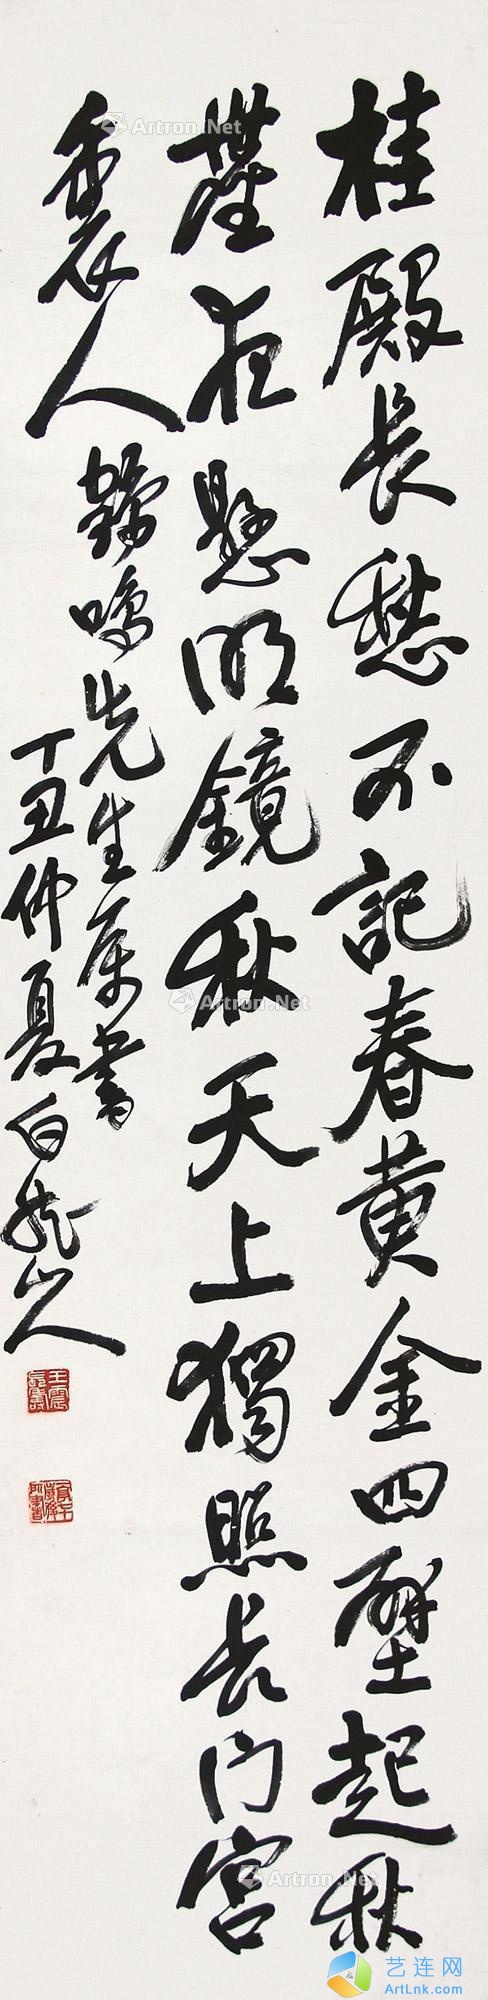 桂殿長愁不記春黄金四壁起秋
塵夜懸明鏡秋天上獨照長門宮
裏人
鳴先生属書
丁丑仲夏白龍山人
王震長壽
Artron.Net
Artron.Net
Artron.Net
艺连网
ArtLnk.com